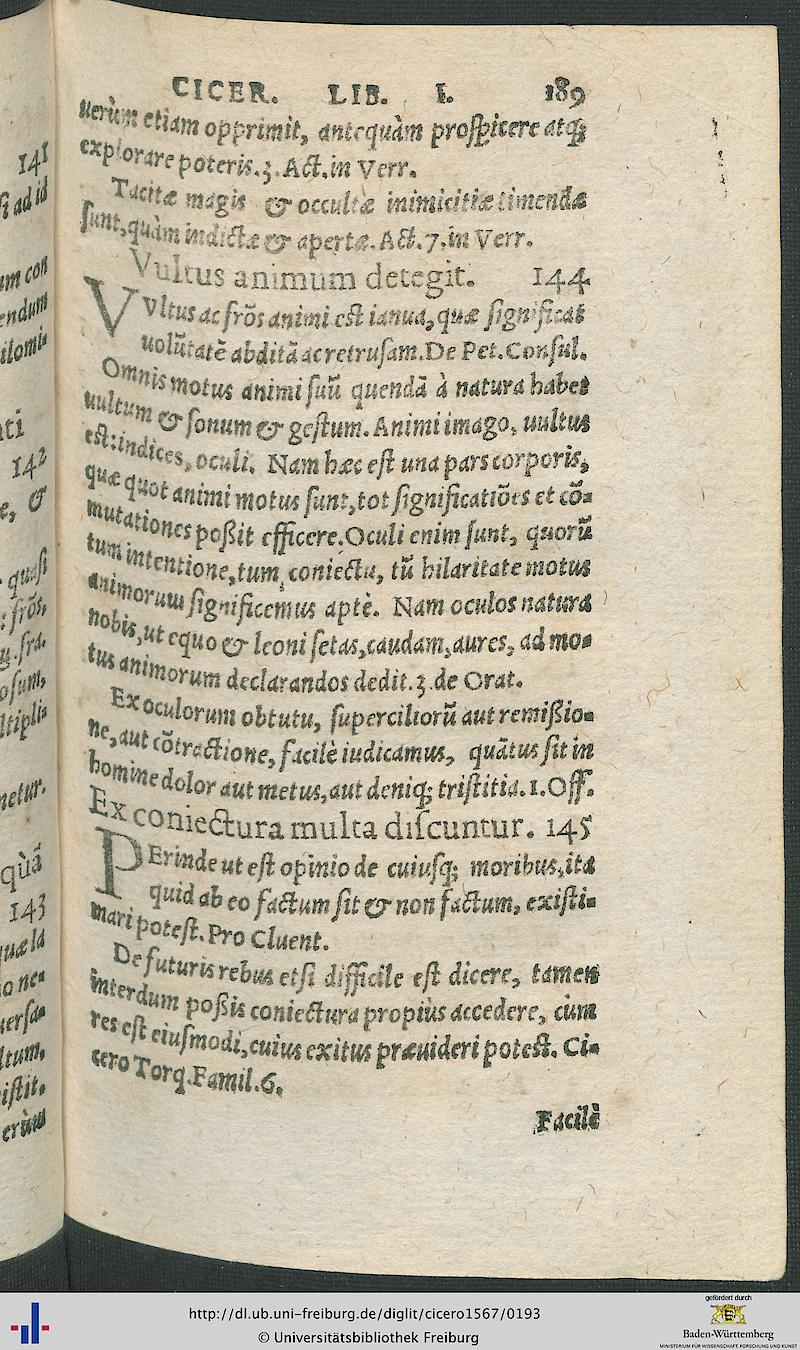 141
si ad id
um con
endum
ilomi⸗
ti
142
e, &
quasi
: frõs,
u. fra.
osum,
ltipli⸗
netur.
quã
143
quæ la
o ne⸗
uersa⸗
ltum,
istit.
erùm
CICER. LIB. I. 189
uerùm etiam opprimit, antequàm prospicere atq;
explorare poteris.3.Act.in Verr.
Tacitæ magis & occultæ inimicitiæ timendæ
sunt,quàm indictæ & apertæ.Act.7.in Verr.
Vultus animum detegit. 144
VVltus ac frõs animi est ianua,quæ significat
uolũtatẽ abditã ac retrusam.De Pet.Consul.
Omnis motus animi suũ quendã à natura habet
uultum & sonum & gestum. Animi imago, uultus
est:indices, oculi. Nam hæc est una pars corporis,
quæ quot animi motus sunt,tot significatiões et cõ⸗
mutationes poßit efficere.Oculi enim sunt, quorũ
tum intentione,tum coniectu, tũ hilaritate motus
animorum significemus aptè. Nam oculos natura
nobis,ut equo & leoni setas,caudam,aures, ad mo⸗
tus animorum declarandos dedit.3.de Orat.
Ex oculorum obtutu, superciliorũ aut remißio⸗
ne,aut cõtractione, facilè iudicamus, quãtus sit in
homine dolor aut metus,aut deniq; tristitia.1.Off.
Ex coniectura multa discuntur. 145
PErinde ut est opinio de cuiusq; moribus,ita
quid ab eo factum sit & non factum, existi⸗
mari potest.Pro Cluent.
De futuris rebus etsi difficile est dicere, tamen
interdum poßis coniectura propiùs accedere, cùm
res est eiusmodi,cuius exitus præuideri potest. Ci⸗
cero Torq.Famil.6.
Facilè
http://dl.ub.uni-freiburg.de/diglit/cicero1567/0193
© Universitätsbibliothek Freiburg
gefördert durch
Baden-Württemberg
MINISTERIUM FÜR WISSENSCHAFT, FORSCHUNG UND KUNST